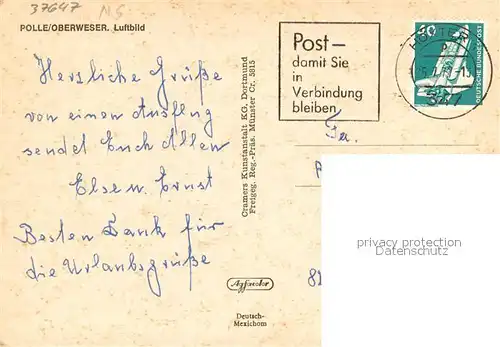 37647
MS
POLLE/OBERWESER. Luftbild
Herzliche Grüße
von einem Ausflug
sendet Euch Allen
Else u. Ernst
Besten Dank für
die Urlaubsgrüße
Cramers Kunstanstalt KG, Dortmund
Freigeg. Reg.-Präs. Münster Cr. 5815
Agfacolor
Deutsch-
Mexichom
Post –
damit Sie
in
Verbindung
bleiben
40
DEUTSCHE BUNDESPOST
Fa.
privacy protection
Datenschutz